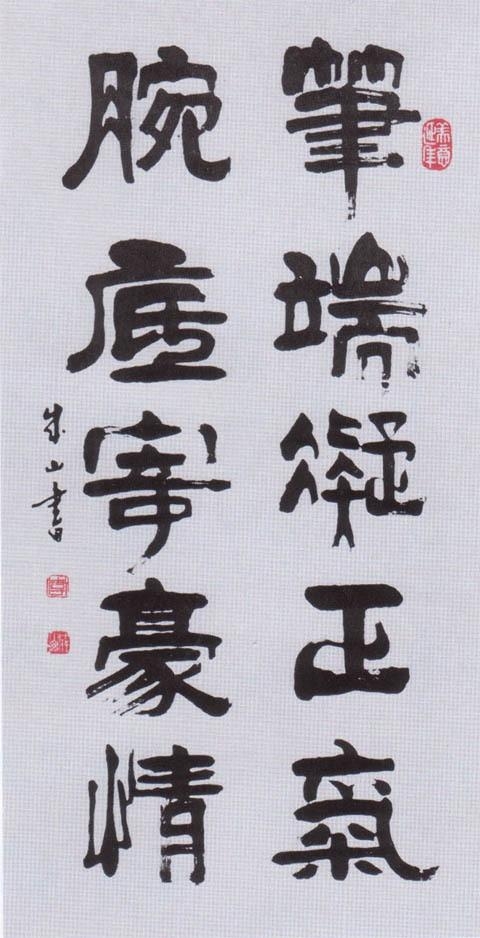 筆端凝正氣
腕底寄豪情
成山書